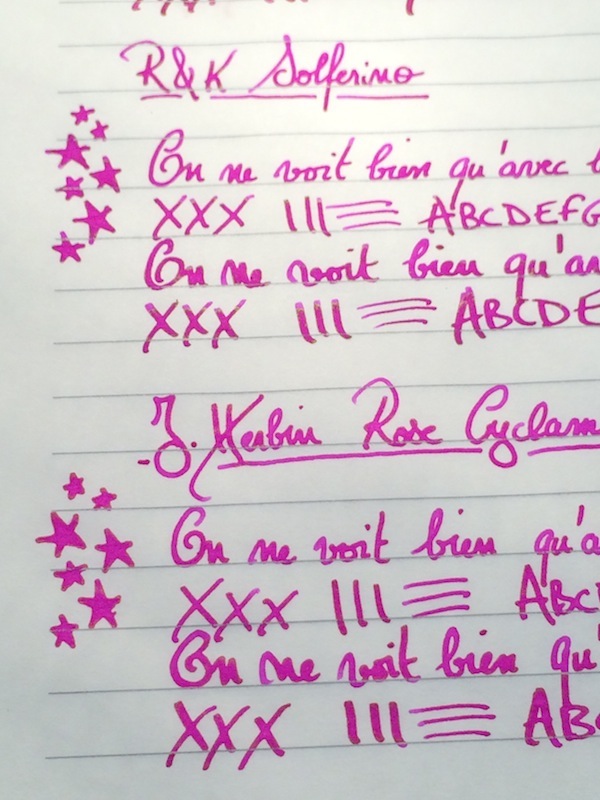 R&K Solferino
On ne voit bien qu'avec
XXX ||| ABCDEFG
On ne voit bien qu'av
XXX ||| ABCDE
J. Herbin Rose Cyclam
On ne voit bien qu'a
XXX ||| ABC
On ne voit bien qu'
XXX ||| ABC